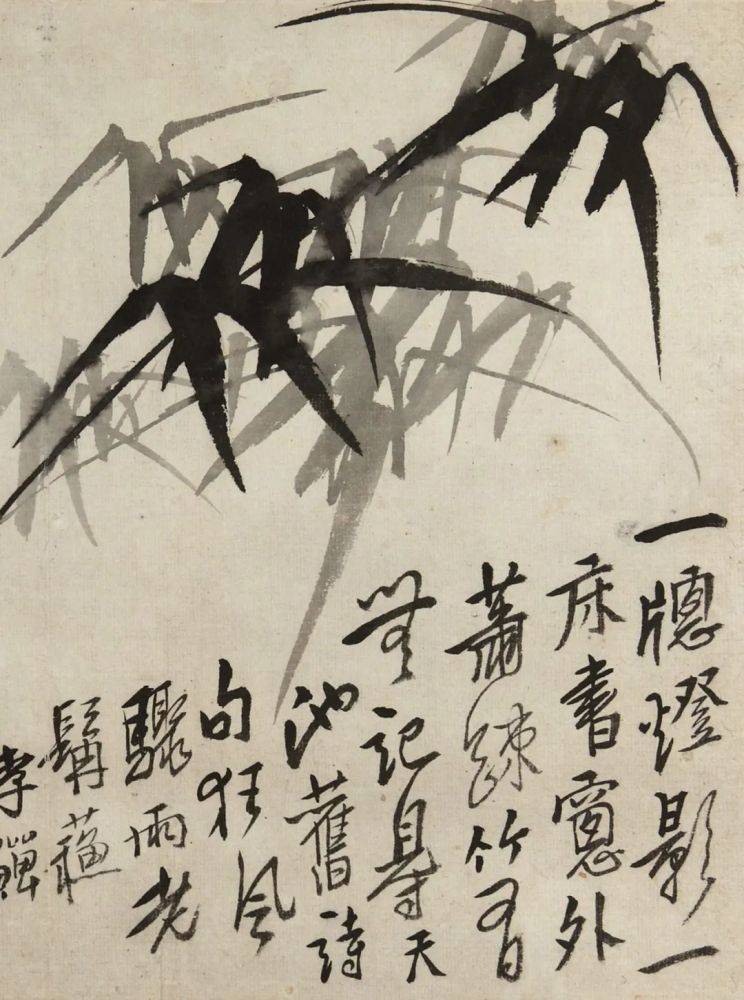 一牕燈影一
床書窻外
蕭疎竹有
無記得天
池舊詩
句狂風
驟雨老
髯蘇
李鱓